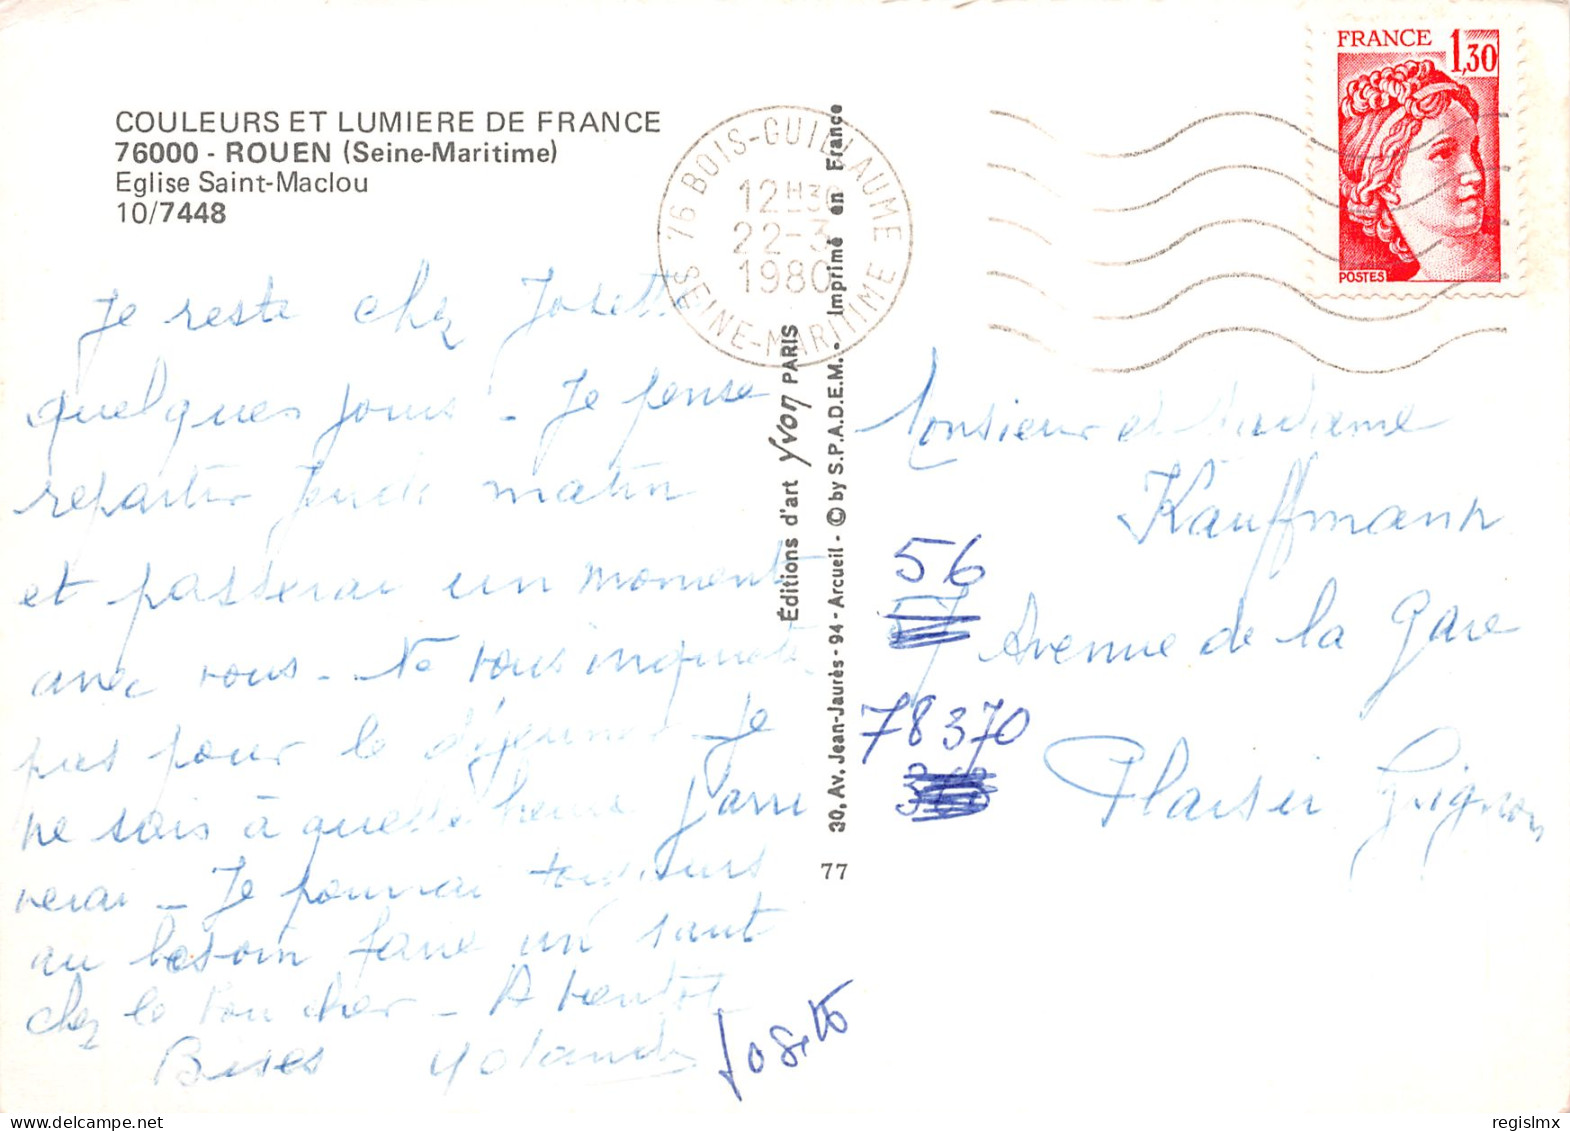 COULEURS ET LUMIERE DE FRANCE
76000 - ROUEN (Seine-Maritime)
Eglise Saint-Maclou
10/7448
Je reste chez Josette
quelques jours - Je pense
repartir Jeudi matin
et passerai un moment
avec vous - Ne vous inquiétez
pas pour le déjeuner - Je
ne sais à quelle heure j'arri
verai - Je pourrai toujours
au besoin faire un saut
chez le boucher - A bientôt
Bises Yolande
Josette
76 BOIS-GUILLAUME
12H30
22-3
1980
SEINE-MARITIME
Éditions d'art Yvon PARIS
30, Av. Jean-Jaurès - 94 - Arcueil - © by S.P.A.D.E.M. - Imprimé en France
77
FRANCE 1,30
POSTES
Monsieur et Madame
Kauffmann
56
Avenue de la Gare
78370
Plaisir Grignon
regislmx